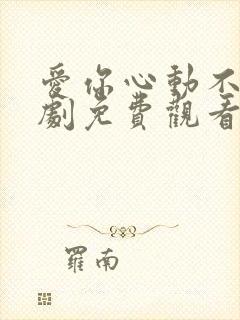 愛你心動不
劇免費觀看
羅南